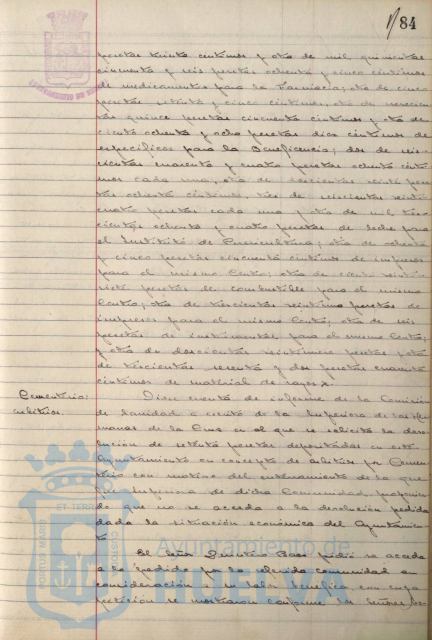 84
pesetas treinta centimos y otra de mil quinientas
cincuenta y seis pesetas ochenta y cinco centimos
de medicamentos para la Farmacia; otra de cinco
pesetas setenta y cinco centimos, otra de
quince pesetas cincuenta centimos y otra de
ciento ochenta y ocho pesetas diez centimos de
especificos para la Beneficencia; dos de seis-
cientas cuarenta y cuatro pesetas ochenta centi-
mos cada una, otra de doscientas veinte pese-
tas ochenta centimos, tres de seiscientas veinti-
cuatro pesetas cada una y otra de mil tres-
cientas ochenta y cuatro pesetas de leche para
el Instituto de Puericultura; otra de ochenta
y cinco pesetas cincuenta centimos de impresos
para el mismo Centro; otra de ciento veinti-
siete pesetas de combustible para el mismo
Centro; otra de trescientas pesetas de
impresos para el mismo Centro; otra de seis
pesetas de instrumentos para el mismo Centro;
y otra de doscientas veintinueve pesetas y otra
de trescientas sesenta y dos pesetas cuarenta
centimos de material de rayos X.
Cementerio:
arbitrios.
Dióse cuenta de informe de la Comisión
de Sanidad a escrito de la Superiora de las Her-
manas de la Cruz en el que se solicita la devo-
lucion de setenta pesetas depositadas en este
Ayuntamiento en concepto de arbitrios por Cemen-
terio con motivo del enterramiento de la que
fué Superiora de dicha Comunidad, proponien-
do que no se acceda a la devolucion pedida
dada la situación económica del Ayuntamien-
to.
El Señor pidió se acceda
a lo pedido por la referida comunidad en
consideración a su labor benefica, con cuya
peticion se mostraron conforme los señores
Ayuntamiento de
HUELVA
PORTUS MARIS ET TERRAE CUSTODIA